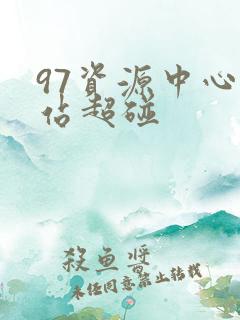 97資源中心
佔超碰
殺魚醬
未经同意禁止转载